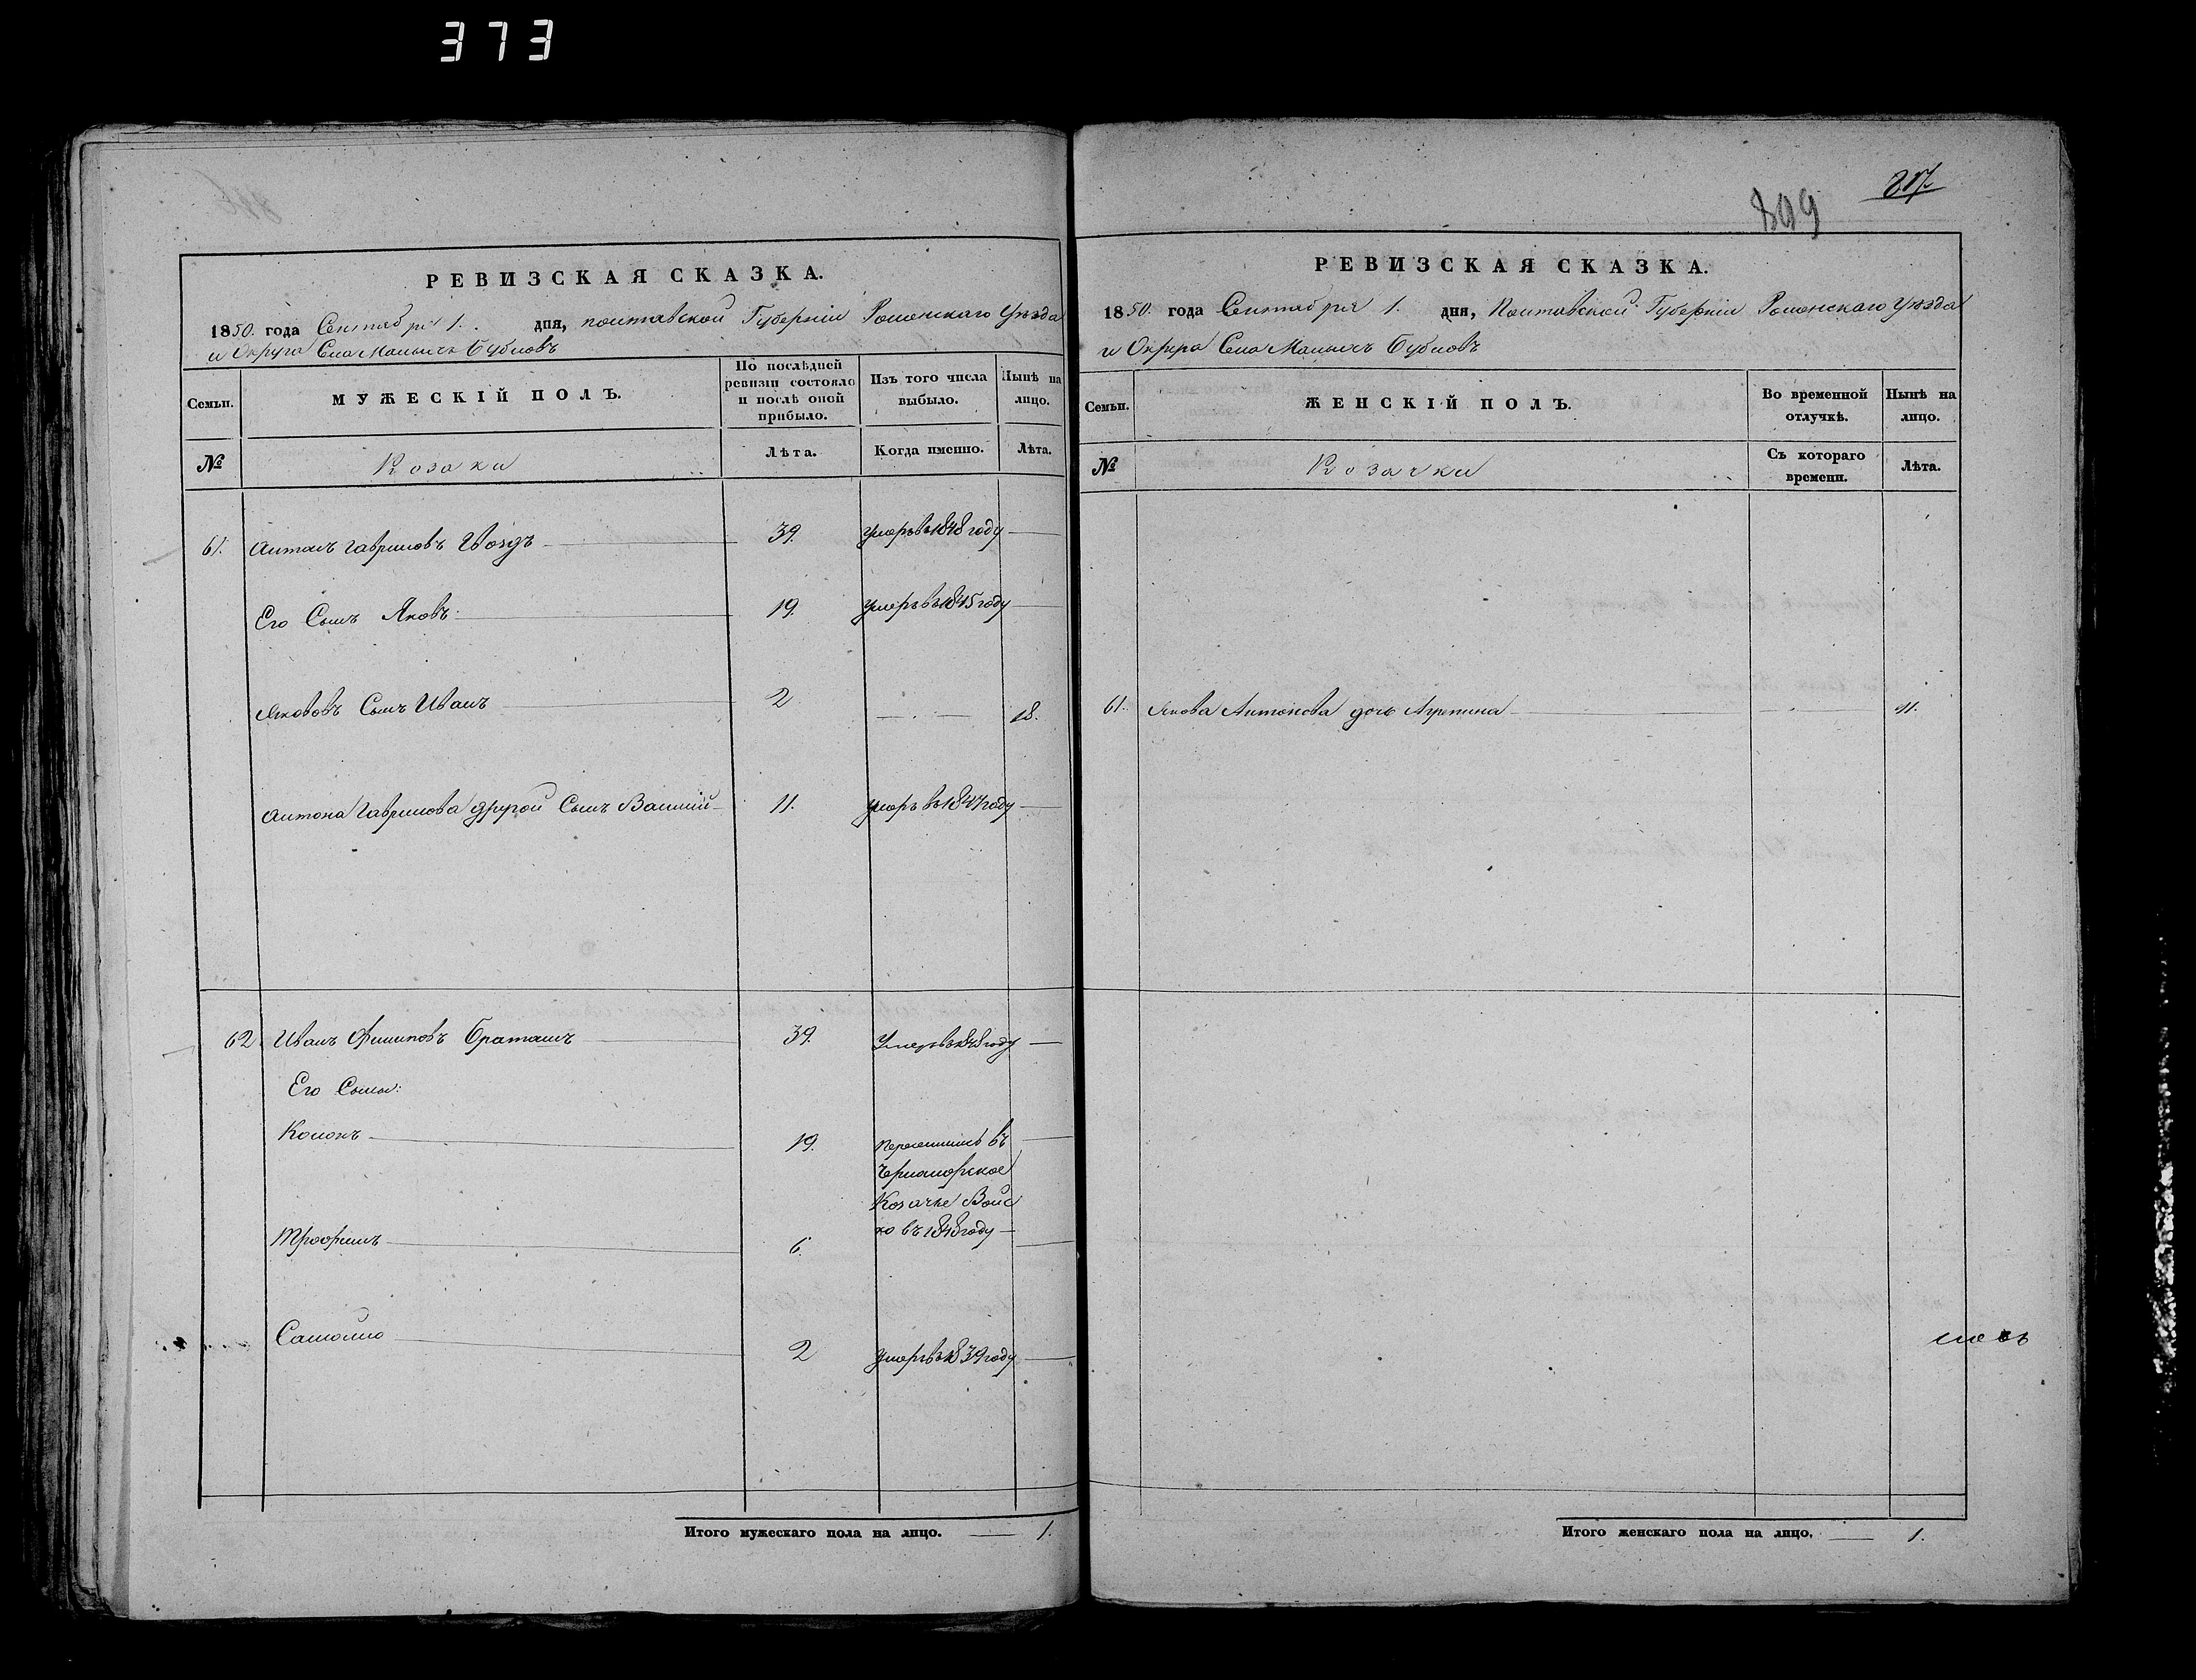 373
817
809
РЕВИЗСКАЯ СКАЗКА.
1850. года Сентября 1. дня, Полтавской Губерніи Роменскаго Уѣзда
и Округа Села Малыхъ Бубновъ
Семьи.
МУЖЕСКІЙ ПОЛЪ.
По послѣдней ревизіи состояло и послѣ оной прибыло.
Изъ того числа выбыло.
Нынѣ на лицо.
№
Козаки
Лѣта.
Когда именно.
Лѣта.
61. Антонъ Гавриловъ 39. Умеръ въ 1848 году
Его Сынъ Яковъ 19. Умеръ въ 1845 году
Яковъ Сынъ Иванъ 2 18.
Антона Гаврилова другой Сынъ Василій 11. Умеръ въ 1847 году
62 Иванъ Филиповъ Браташъ 39. Умеръ въ 1848 году
Его Сыны:
19. Переселились въ
Черноморское
Козачье Войс
ко въ 1848 году
Трофимъ 6.
Самойло 2 Умеръ въ 1839 году
Итого мужескаго пола на лицо. 1.
РЕВИЗСКАЯ СКАЗКА.
1850. года Сентября 1. дня, Полтавской Губерніи Роменскаго Уѣзда
и Округа Села Малыхъ Бубновъ
Семьи.
ЖЕНСКІЙ ПОЛЪ.
Во временной отлучкѣ.
Нынѣ на лицо.
№
Козачки
Съ котораго времени.
Лѣта.
61. Якова Антонова дочь Агрепина 11.
Итого женскаго пола на лицо. 1.